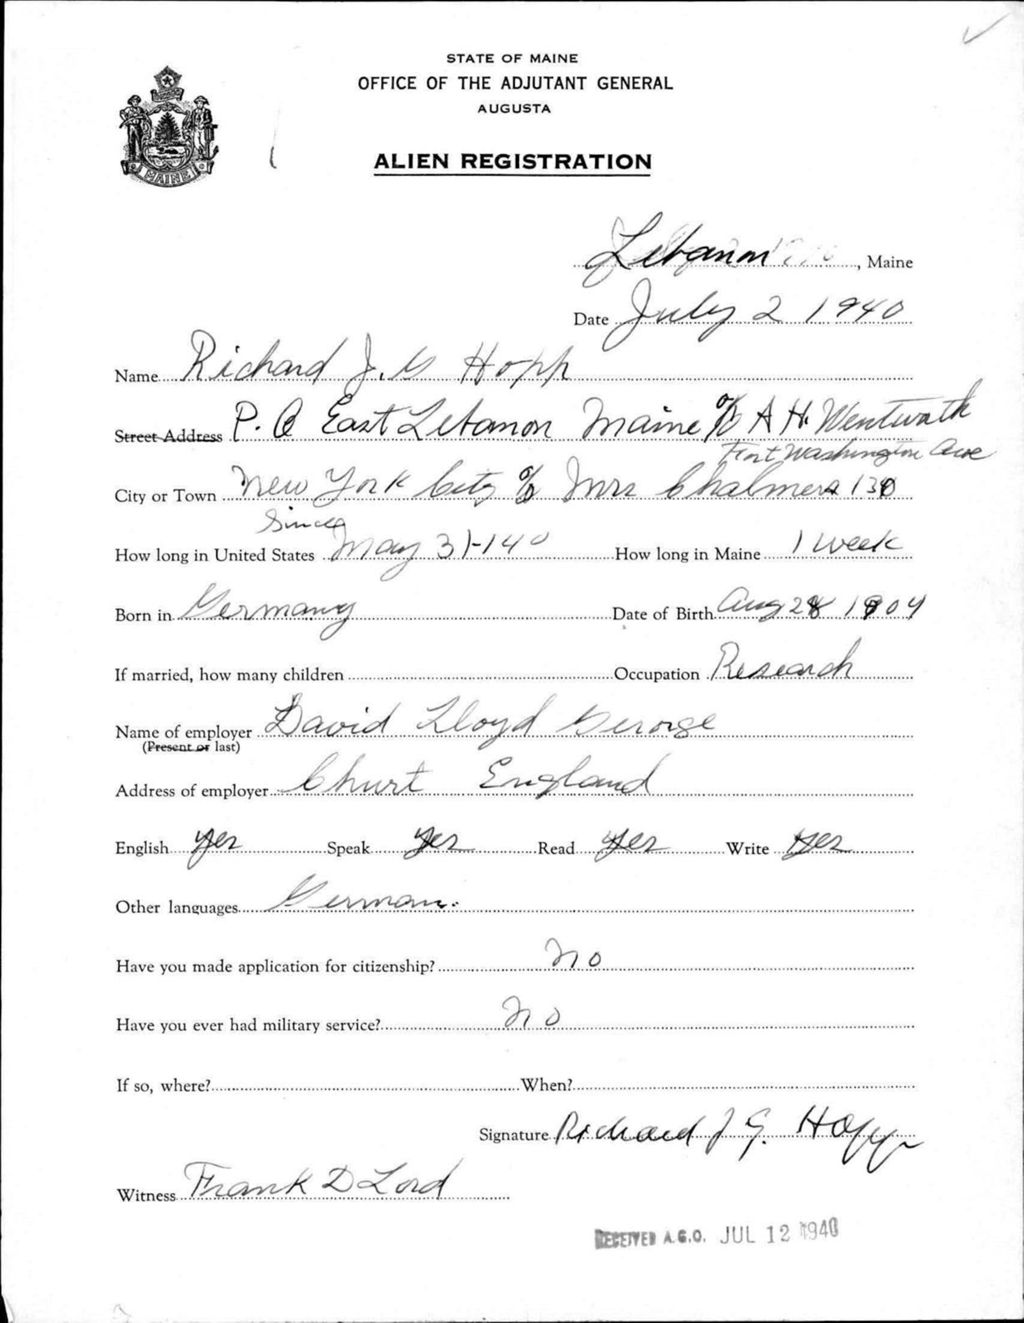 STATE OF MAINE
OFFICE OF THE ADJUTANT GENERAL
AUGUSTA
MAINE
ALIEN REGISTRATION
Lebanon, Maine
Date July 2 1940
Name Richard J. G Hopp
Street Address P. O East Lebanon Maine % A H. Wentworth
Fort Washington Ave
City or Town New York City % Mrs Chalmers 130
Since
How long in United States May 31-1940 How long in Maine 1 week
Born in Germany Date of Birth Aug 28 1904
If married, how many children Occupation Research
Name of employer David Lloyd Gerorge
(Present or last)
Address of employer Churt England
English Yes Speak Yes Read Yes Write Yes
Other languages German.
Have you made application for citizenship? No
Have you ever had military service? No
If so, where? When?
Signature Richard J G. Hopp
Witness Frank D Lord
RECEIVED A.G.O. JUL 12 1940